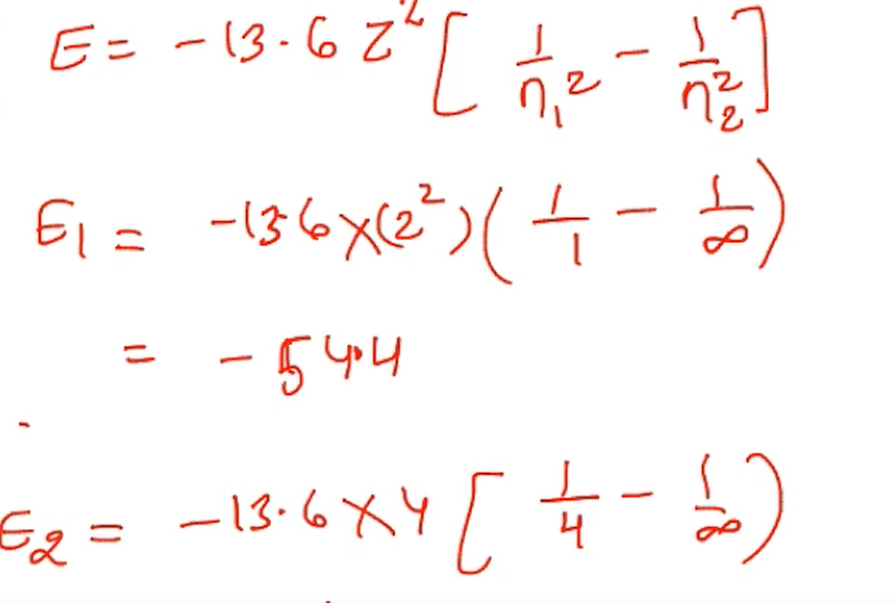 E = -13.6 Z² [ 1/n₁² - 1/n₂² ]
E₁ = -136 × (2²) ( 1/1 - 1/∞ )
= - 54.4
E₂ = -13.6 × 4 [ 1/4 - 1/∞ )